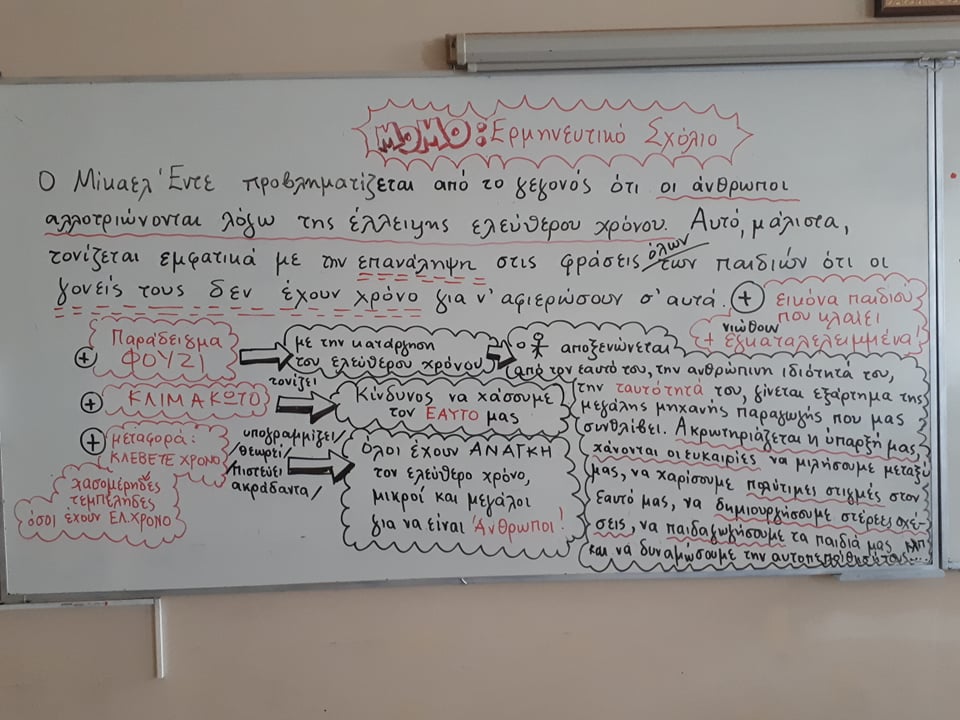 ΜΟΜΟ: Ερμηνευτικό Σχόλιο
Ο Μίκαελ Έντε προβληματίζεται από το γεγονός ότι οι άνθρωποι
αλλοτριώνονται λόγω της έλλειψης ελεύθερου χρόνου. Αυτό, μάλιστα,
τονίζεται εμφατικά με την επανάληψη στις φράσεις όλων των παιδιών ότι οι
γονείς τους δεν έχουν χρόνο για ν' αφιερώσουν σ' αυτά. + εικόνα παιδιού
που κλαίει
+ νιώθουν εγκαταλελειμμένα!
+ Παράδειγμα
ΦΟΥΖΙ
με την κατάργηση
του ελεύθερου χρόνου
αποξενώνεται
από τον εαυτό του, την ανθρώπινη ιδιότητά του,
την ταυτότητά του, γίνεται εξάρτημα της
μεγάλης μηχανής παραγωγής που μας
συνθλίβει. Ακρωτηριάζεται η ύπαρξή μας,
χάνονται οι ευκαιρίες να μιλήσουμε μεταξύ
μας, να χαρίσουμε πολύτιμες στιγμές στον
εαυτό μας, να δημιουργήσουμε στέρεες σχέ-
σεις, να παιδαγωγήσουμε τα παιδιά μας
και να δυναμώσουμε την αυτοπεποίθησή τους....
+ ΚΛΙΜΑΚΩΤΟ
τονίζει
Κίνδυνος να χάσουμε
τον ΕΑΥΤΟ μας
+ μεταφορά:
ΚΛΕΒΕΤΕ ΧΡΟΝΟ
χασομέρηδες
τεμπέληδες
όσοι έχουν ΕΛ.ΧΡΟΝΟ
υπογραμμίζει/
θεωρεί/
πιστεύει
ακράδαντα/
Όλοι έχουν ΑΝΑΓΚΗ
τον ελεύθερο χρόνο,
μικροί και μεγάλοι
για να είναι Άνθρωποι!